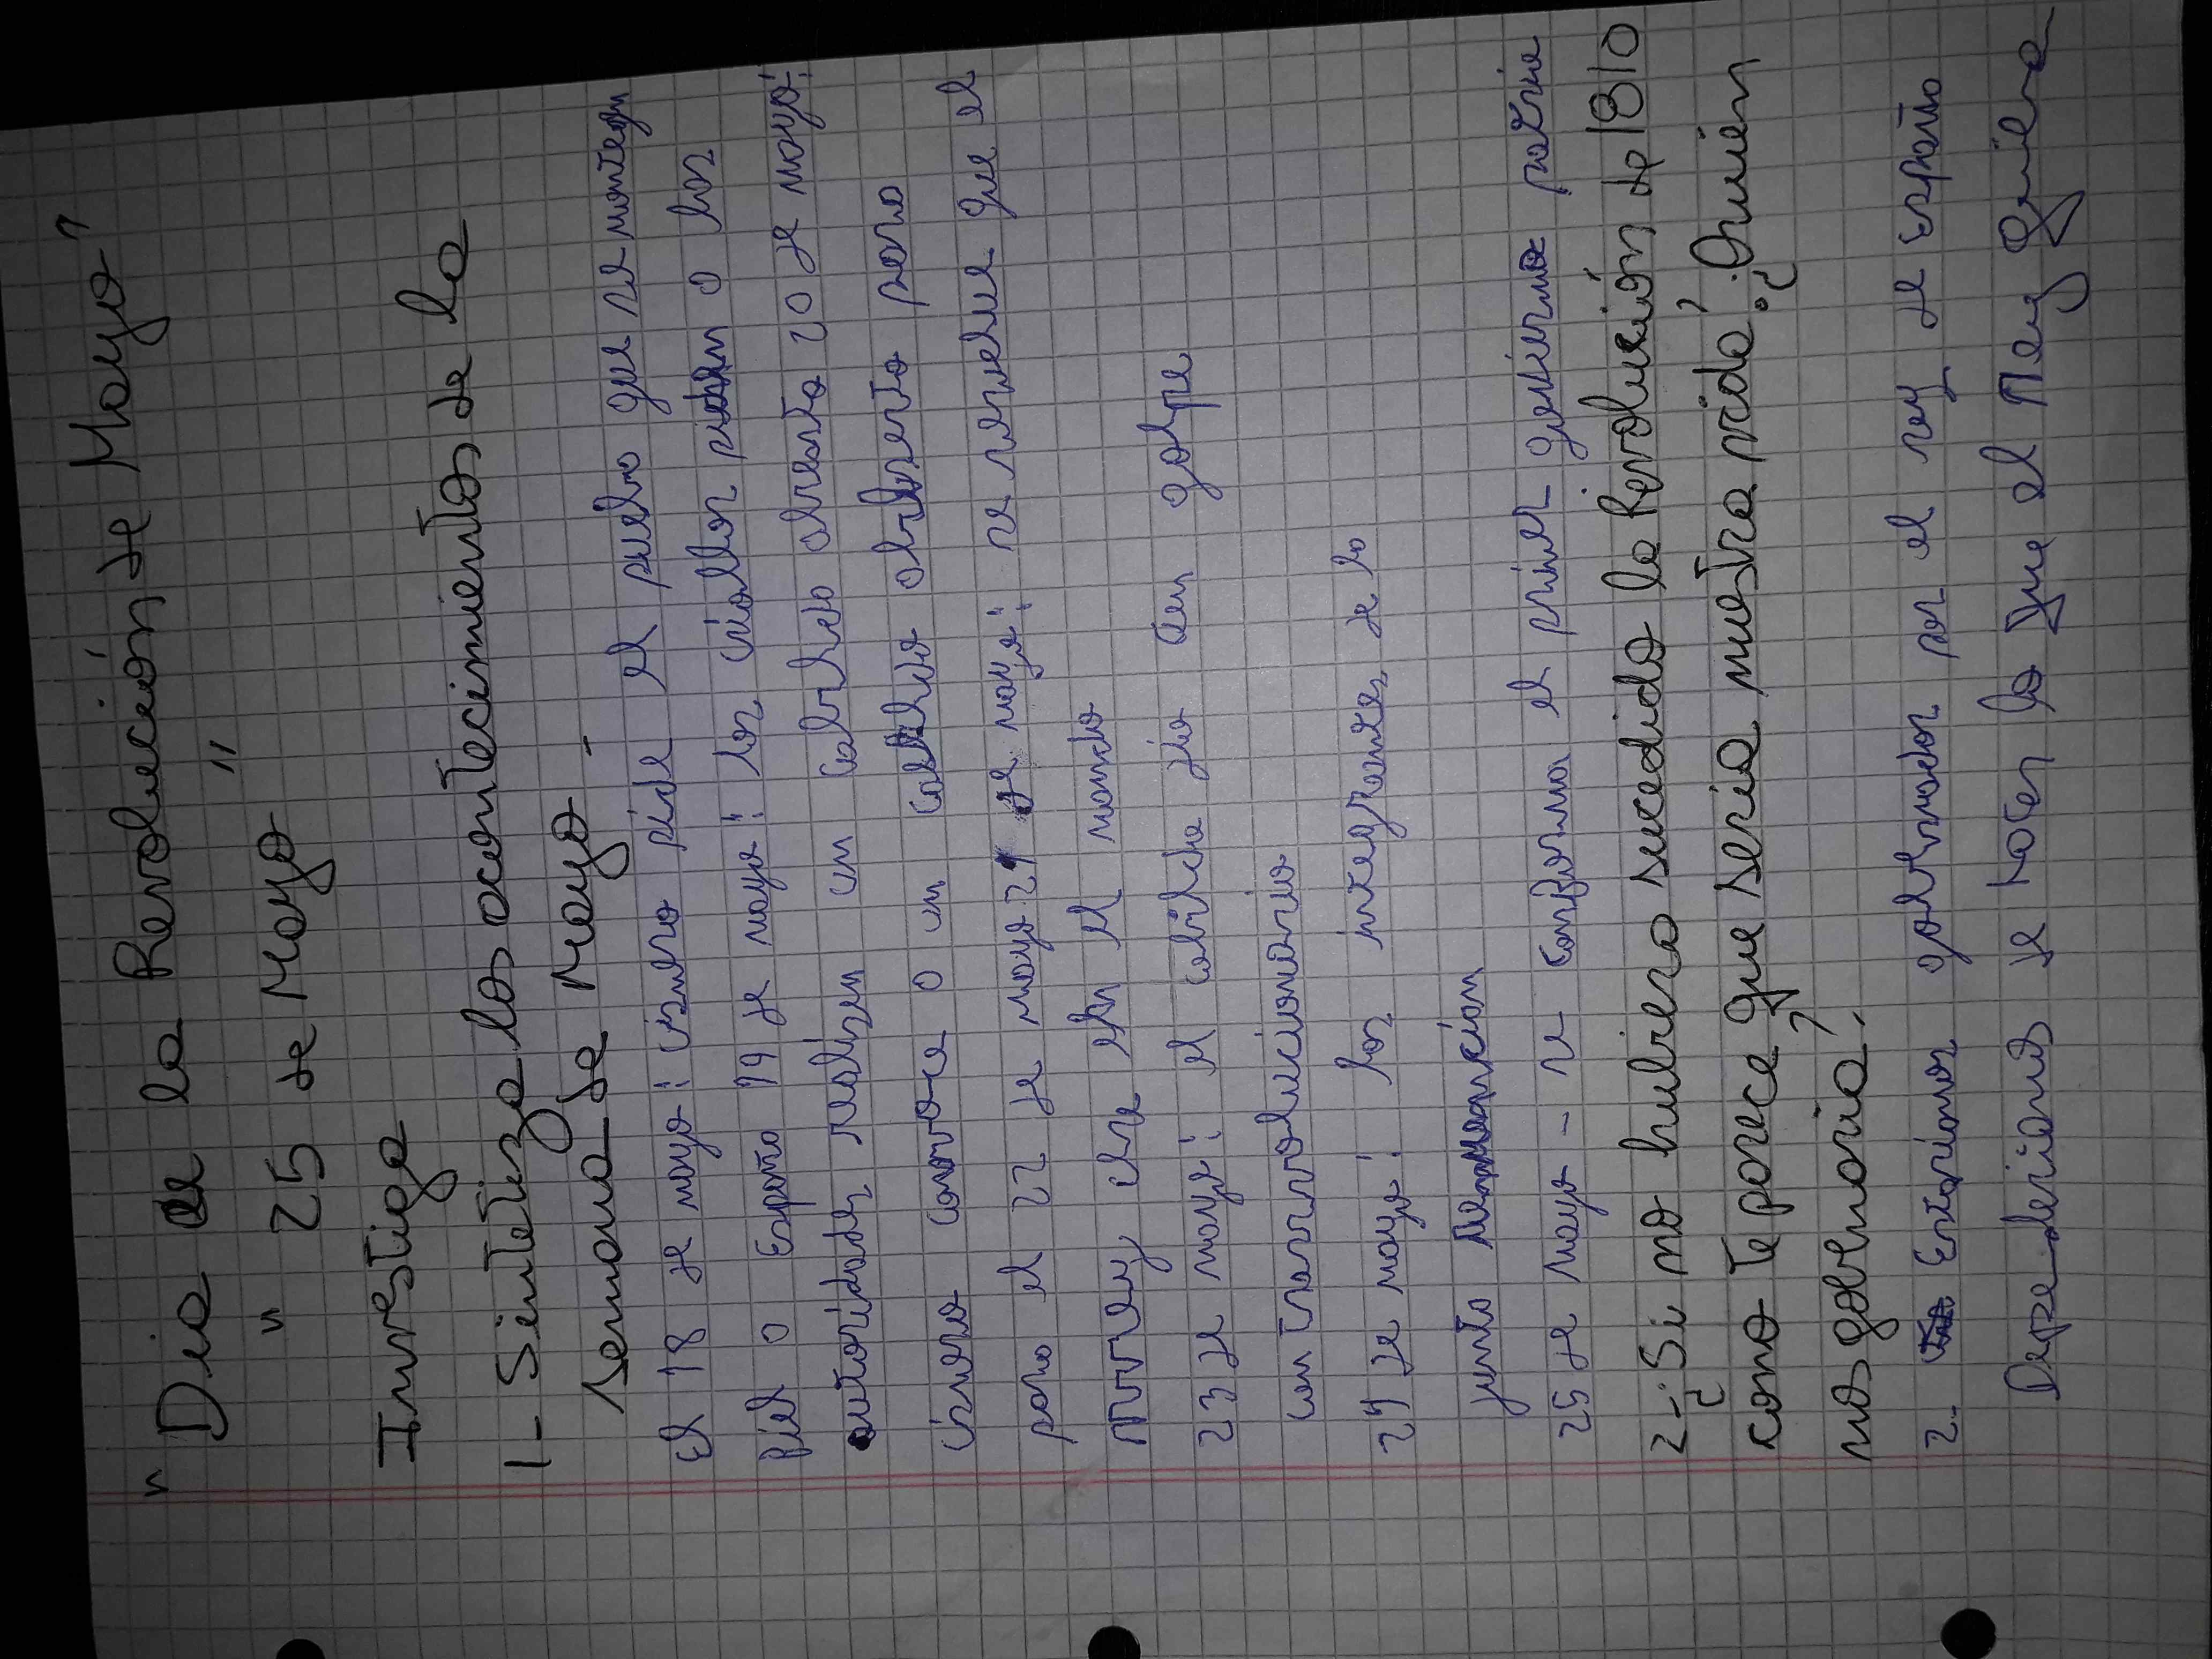 " Dia de la Revolución de Mayo"
" 25 de Mayo "
Investiga
1- Sintetiza los acontecimientos de la
semana de Mayo -
El 18 de mayo: cisnero pide el pueblo que se mantegan
fiel a España 19 de mayo: los criollos piden a las
autoridades realizen un cabildo abierto 20 de mayo:
cisnero convoce a un cabildo abierto para
para el 22 de mayo 21 de mayo: se resuelve que el
virrey cese en el mando
23 de mayo: el cabildo dio un golpe
contrarrevolucionario
24 de mayo: los integrantes de la
junta
25 de mayo - se conforma el primer gobierno patrio
2-¿Si no hubiera sucedido la Revolución de 1810
como te parece que seria nuestra vida? ¿Quién
nos gobernaria?
2- Estariamos gobernados por el rey de España
Dependeriamos de hacer lo que el Rey quiera